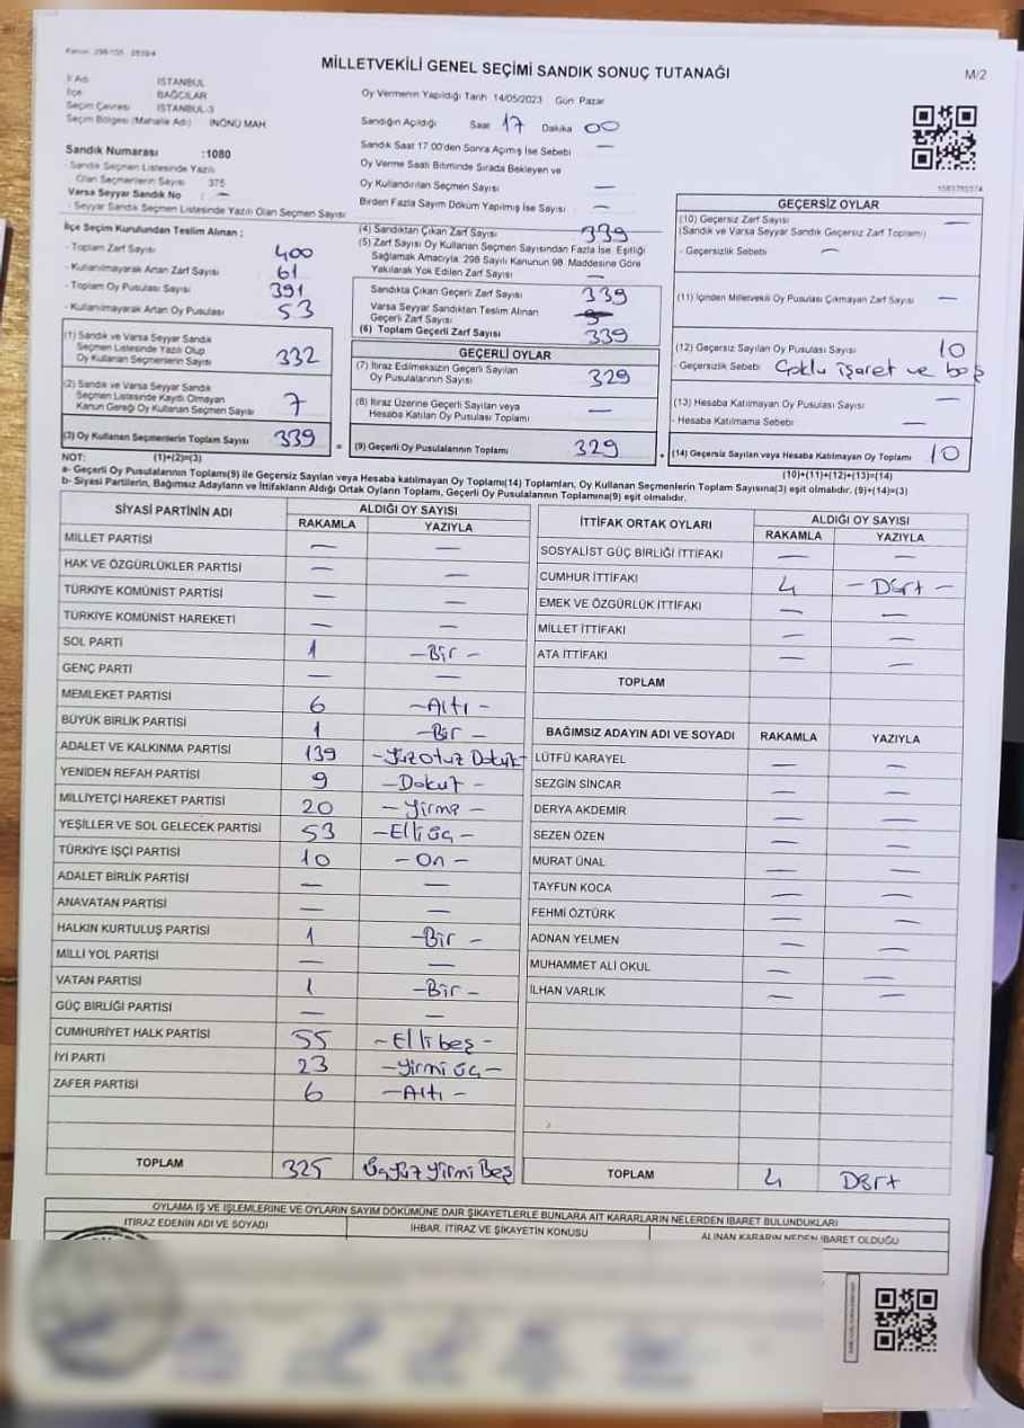 MİLLETVEKİLİ GENEL SEÇİMİ SANDIK SONUÇ TUTANAĞI
M/2
İl Adı İSTANBUL
İlçe BAĞCILAR
Seçim Çevresi İSTANBUL-3
Seçim Bölgesi (Mahalle Adı) İNÖNÜ MAH
Sandık Numarası :1080
- Sandık Seçmen Listesinde Yazılı
Olan Seçmenlerin Sayısı 375
Varsa Seyyar Sandık No : —
- Seyyar Sandık Seçmen Listesinde Yazılı Olan Seçmen Sayısı
Oy Vermenin Yapıldığı Tarih 14/05/2023 Gün Pazar
Sandığın Açıldığı Saat 17 Dakika 00
Sandık Saat 17:00'den Sonra Açımış İse Sebebi —
Oy Verme Saati Bitiminde Sırada Bekleyen ve
Oy Kullandırılan Seçmen Sayısı —
Birden Fazla Sayım Döküm Yapılmış İse Sayısı —
İlçe Seçim Kurulundan Teslim Alınan ;
- Toplam Zarf Sayısı 400
- Kullanılmayarak Artan Zarf Sayısı 61
- Toplam Oy Pusulası Sayısı 391
- Kullanılmayarak Artan Oy Pusulası 53
(1) Sandık ve Varsa Seyyar Sandık
Seçmen Listesinde Yazılı Olup
Oy Kullanan Seçmenlerin Sayısı 332
(2) Sandık ve Varsa Seyyar Sandık
Seçmen Listesinde Kaydı Olmayan
Kanun Gereği Oy Kullanan Seçmen Sayısı 7
(3) Oy Kullanan Seçmenlerin Toplam Sayısı 339
(4) Sandıktan Çıkan Zarf Sayısı 339
(5) Zarf Sayısı Oy Kullanan Seçmen Sayısından Fazla İse, Eşitliği
Sağlamak Amacıyla, 298 Sayılı Kanunun 98. Maddesine Göre
Yakılarak Yok Edilen Zarf Sayısı —
Sandıkta Çıkan Geçerli Zarf Sayısı 339
Varsa Seyyar Sandıktan Teslim Alınan
Geçerli Zarf Sayısı
(6) Toplam Geçerli Zarf Sayısı 339
GEÇERLİ OYLAR
(7) İtiraz Edilmeksizin Geçerli Sayılan
Oy Pusulalarının Sayısı 329
(8) İtiraz Üzerine Geçerli Sayılan veya
Hesaba Katılan Oy Pusulası Toplamı —
= (9) Geçerli Oy Pusulalarının Toplamı 329
GEÇERSİZ OYLAR
(10) Geçersiz Zarf Sayısı —
(Sandık ve Varsa Seyyar Sandık Geçersiz Zarf Toplamı)
- Geçersizlik Sebebi —
(11) İçinden Milletvekili Oy Pusulası Çıkmayan Zarf Sayısı —
(12) Geçersiz Sayılan Oy Pusulası Sayısı 10
- Geçersizlik Sebebi Çoklu işaret ve boş
(13) Hesaba Katılmayan Oy Pusulası Sayısı —
- Hesaba Katılmama Sebebi —
+ (14) Geçersiz Sayılan veya Hesaba Katılmayan Oy Toplamı 10
NOT: (1)+(2)=(3) (10)+(11)+(12)+(13)=(14)
a- Geçerli Oy Pusulalarının Toplamı(9) ile Geçersiz Sayılan veya Hesaba katılmayan Oy Toplamı(14) Toplamları, Oy Kullanan Seçmenlerin Toplam Sayısına(3) eşit olmalıdır. (9)+(14)=(3)
b- Siyasi Partilerin, Bağımsız Adayların ve İttifakların Aldığı Ortak Oyların Toplamı, Geçerli Oy Pusulalarının Toplamına(9) eşit olmalıdır.
SİYASİ PARTİNİN ADI ALDIĞI OY SAYISI
RAKAMLA YAZIYLA
MİLLET PARTİSİ — —
HAK VE ÖZGÜRLÜKLER PARTİSİ — —
TÜRKİYE KOMÜNİST PARTİSİ — —
TÜRKİYE KOMÜNİST HAREKETİ — —
SOL PARTİ 1 -Bir -
GENÇ PARTİ — —
MEMLEKET PARTİSİ 6 -Altı -
BÜYÜK BİRLİK PARTİSİ 1 -Bir -
ADALET VE KALKINMA PARTİSİ 139 -Yüzotuz Dokuz-
YENİDEN REFAH PARTİSİ 9 -Dokuz -
MİLLİYETÇİ HAREKET PARTİSİ 20 -Yirmi -
YEŞİLLER VE SOL GELECEK PARTİSİ 53 -Elliüç -
TÜRKİYE İŞÇİ PARTİSİ 10 - On -
ADALET BİRLİK PARTİSİ — —
ANAVATAN PARTİSİ — —
HALKIN KURTULUŞ PARTİSİ 1 -Bir -
MİLLİ YOL PARTİSİ — —
VATAN PARTİSİ 1 -Bir -
GÜÇ BİRLİĞİ PARTİSİ — —
CUMHURİYET HALK PARTİSİ 55 -Ellibeş -
İYİ PARTİ 23 -Yirmi üç -
ZAFER PARTİSİ 6 -Altı -
TOPLAM 325 Üçyüz Yirmi Beş
İTTİFAK ORTAK OYLARI ALDIĞI OY SAYISI
RAKAMLA YAZIYLA
SOSYALİST GÜÇ BİRLİĞİ İTTİFAKI — —
CUMHUR İTTİFAKI 4 - Dört -
EMEK VE ÖZGÜRLÜK İTTİFAKI — —
MİLLET İTTİFAKI — —
ATA İTTİFAKI — —
TOPLAM
BAĞIMSIZ ADAYIN ADI VE SOYADI RAKAMLA YAZIYLA
LÜTFÜ KARAYEL — —
SEZGİN SİNCAR — —
DERYA AKDEMİR — —
SEZEN ÖZEN — —
MURAT ÜNAL — —
TAYFUN KOCA — —
FEHMİ ÖZTÜRK — —
ADNAN YELMEN — —
MUHAMMET ALİ OKUL — —
İLHAN VARLIK — —
TOPLAM 4 Dört
OYLAMA İŞ VE İŞLEMLERİNE VE OYLARIN SAYIM DÖKÜMÜNE DAİR ŞİKAYETLERLE BUNLARA AİT KARARLARIN NELERDEN İBARET BULUNDUKLARI
İTİRAZ EDENİN ADI VE SOYADI İHBAR, İTİRAZ VE ŞİKAYETİN KONUSU ALINAN KARARIN NEDEN İBARET OLDUĞU